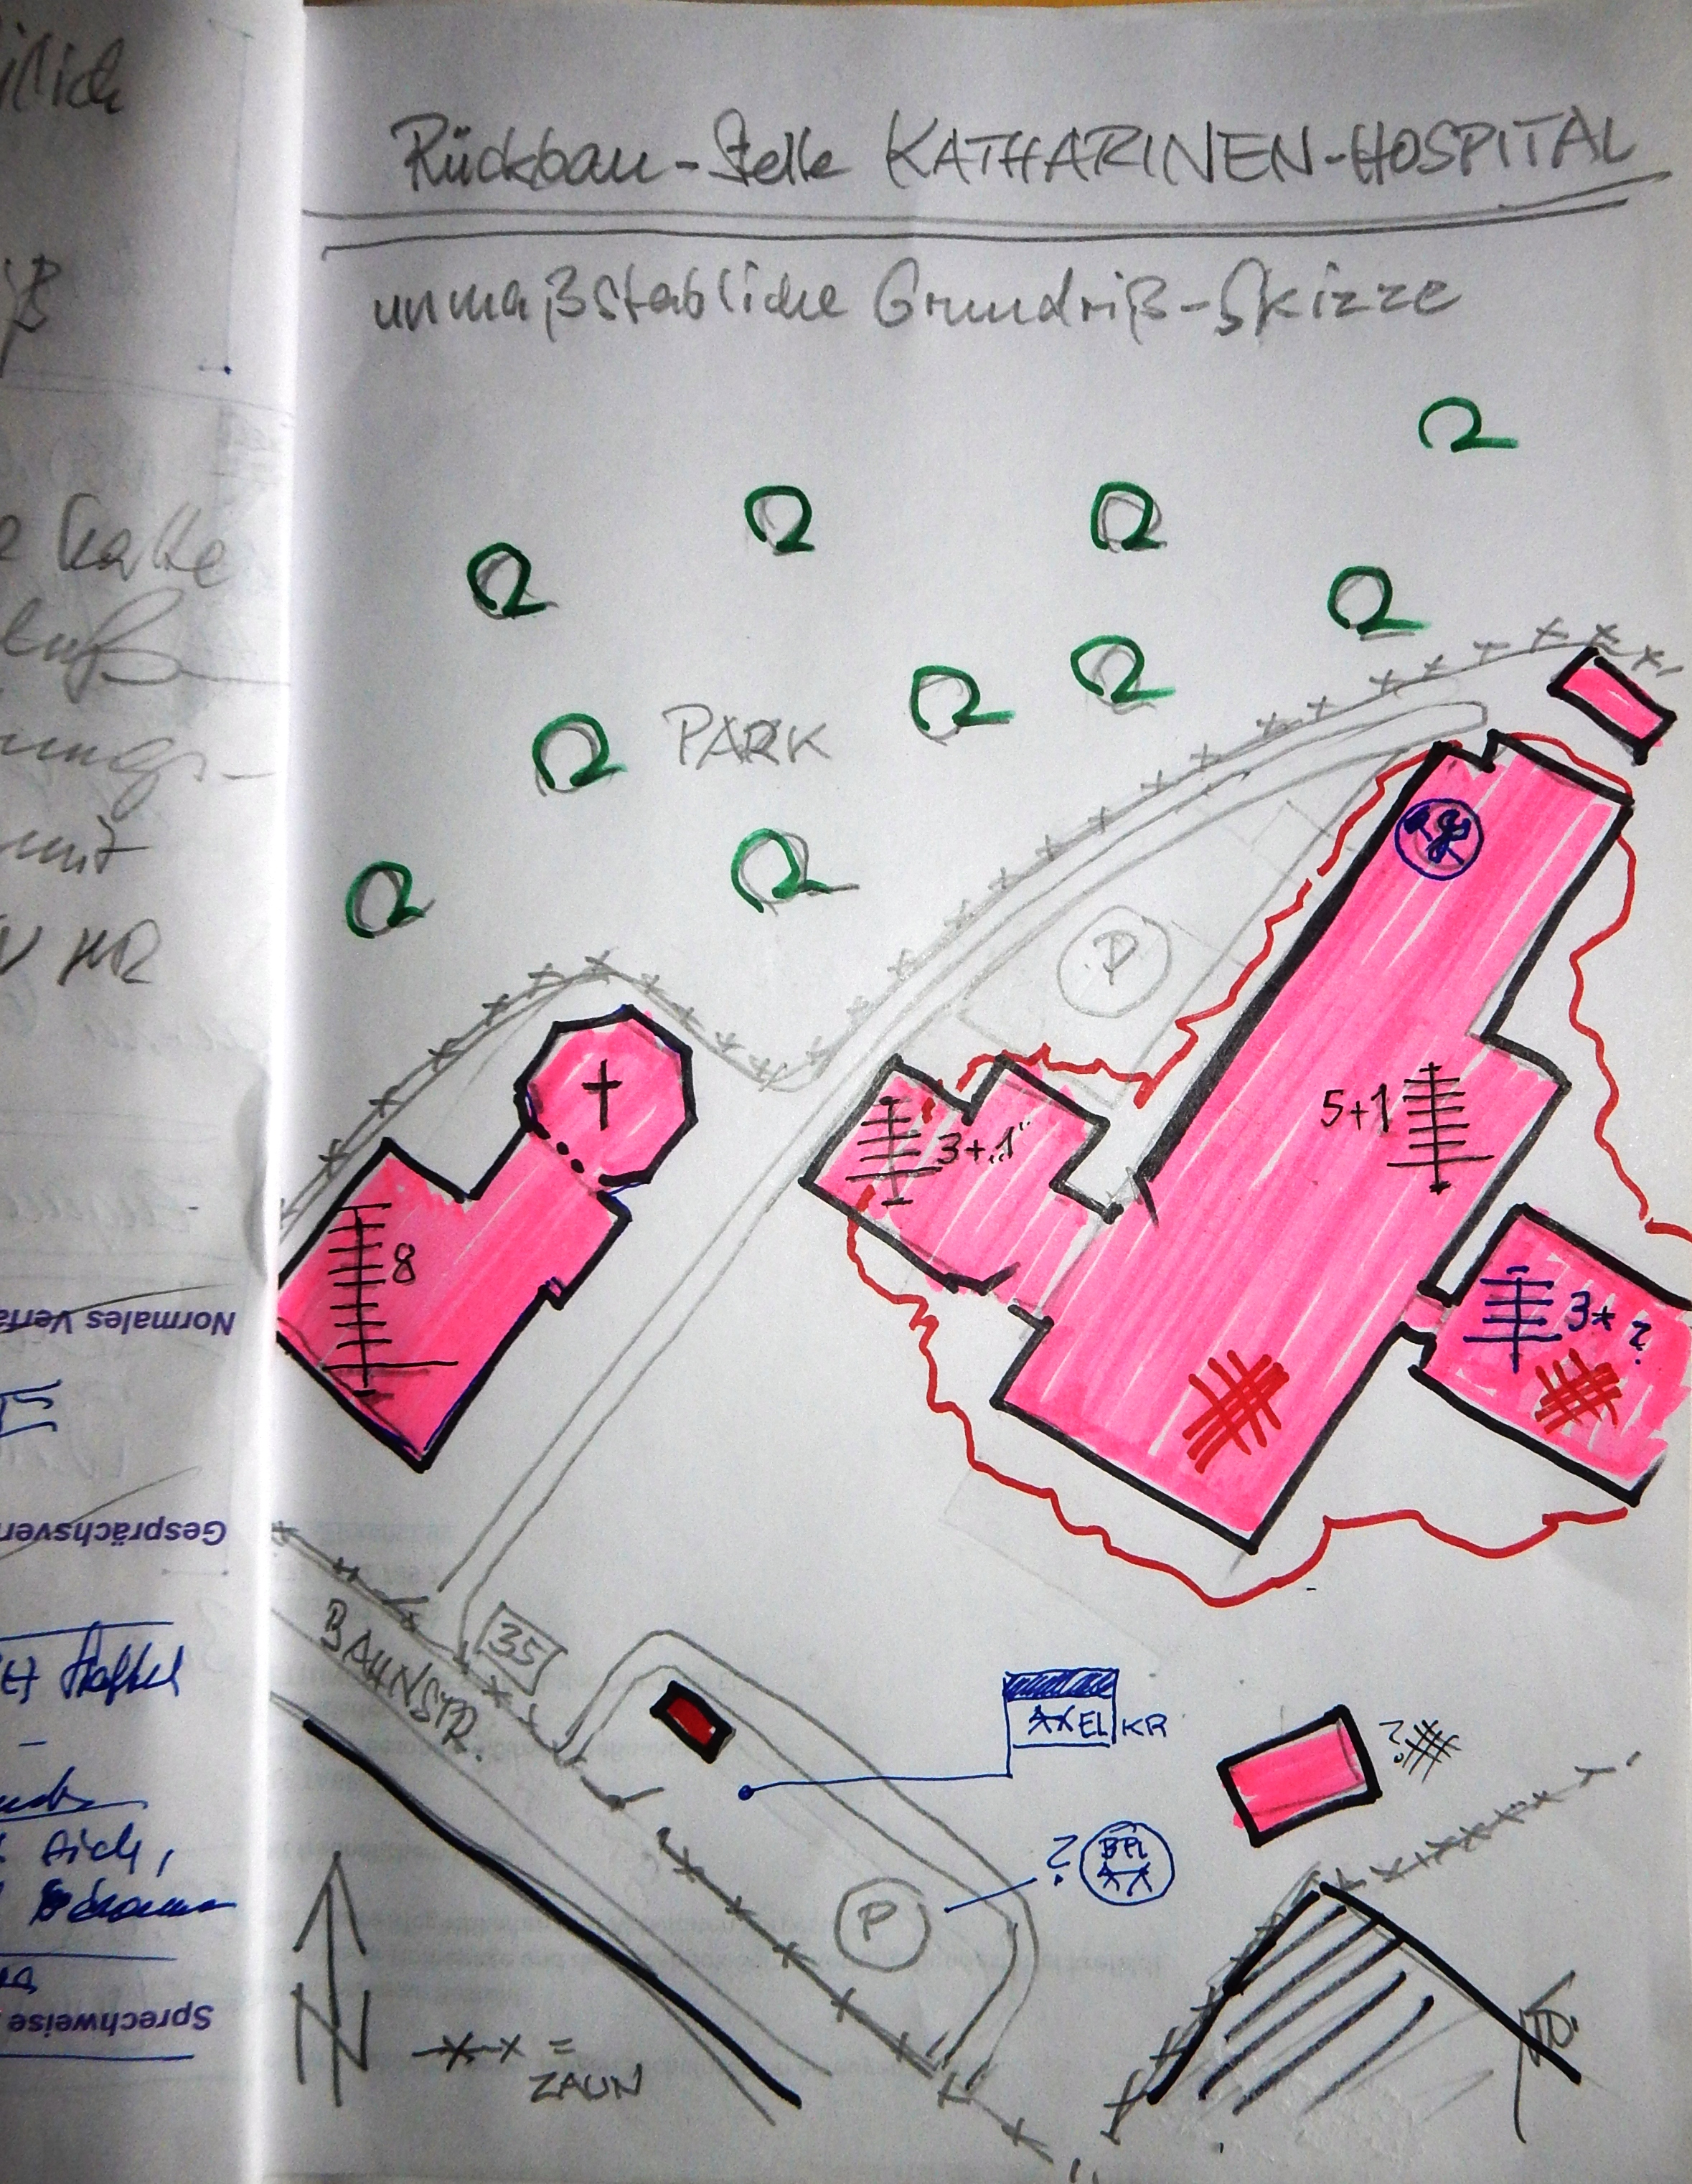 Rückbau-Stelle KATHARINEN-HOSPITAL
unmaßstabliche Grundriß-Skizze
PARK
P
5+1
3+1
8
3+?
35
BAHNSTR.
AXEL KR
?
? BPL
P
N
x-x = ZAUN
Karte
mit
KR
Normales Verfa
Gesprächsver
Staffel
Sprechweise